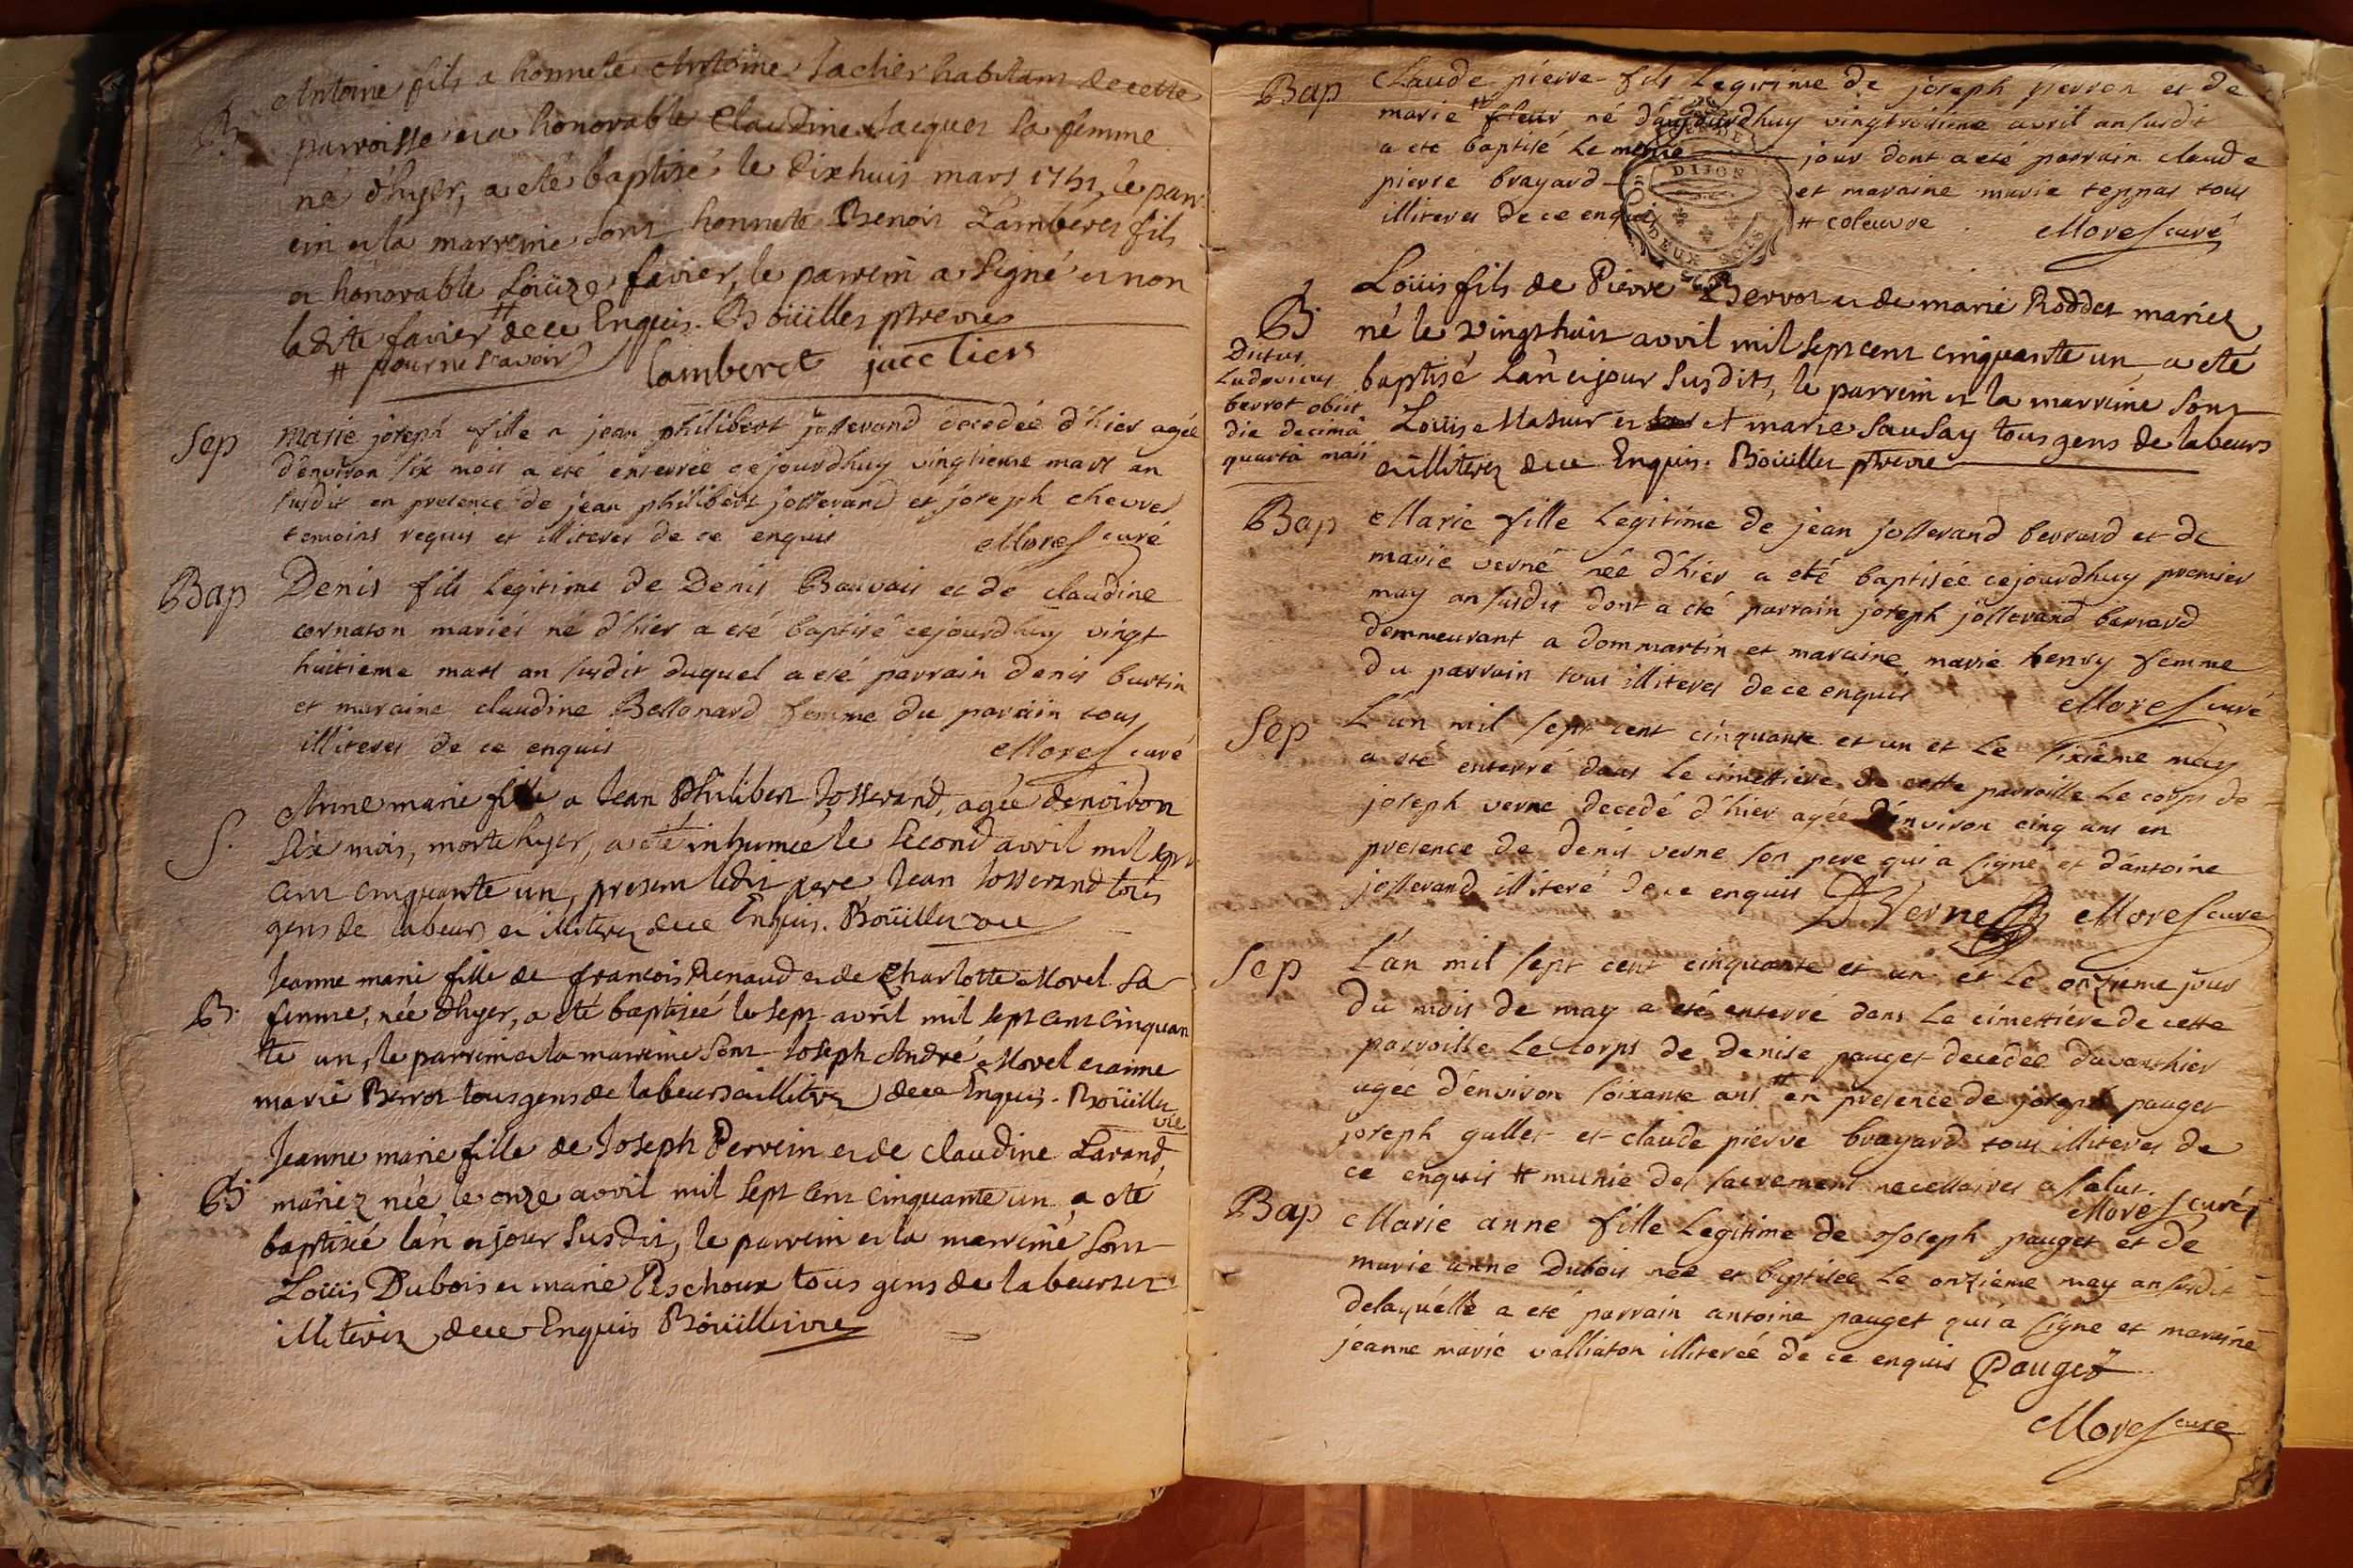 B.
Antoine fils a honnete Antoine Jacties habitant de cette
parroisse et a honorable Claudine Jacques sa femme
né d'hyer, a eté baptisé le dixhuit mars 1751, le parr
ein et la marreine sont honnete Benoit Lamberet fils
et honorable Loüize favier, le parrein a signé et non
ladite favier # de ce Enquis. Boüilles ptre vre
# pour ne scavoir
lamberet jacctiers
Sep
marie joseph fille a jean philibert josserand decedée d'hier agée
d'environ six mois a eté enterrée cejourdhuy vingtieme mars an
susdit en presence de jean philibert josserand et joseph chevrel
temoins requis et illiteres de ce enquis
Morel curé
Bap
Denis fils legitime de Denis Bauvais et de claudine
cornaton mariés né d'hier a eté baptisé cejourdhuy vingt
huitieme mars an susdit duquel a eté parrain denis burtin
et maraine claudine Bellonard femme du parain tous
illiteres de ce enquis
Morel curé
S.
Anne marie fille a Jean Philibert Josserand, agée denviron
six mois, morte hyer, a eté inhumée le second avril mil sept
cent cinquante un, present ledit pere, Jean Josserand tous
gens de labeurs et illiterez de ce Enquis. Boüilles vre
B.
Jeanne marie fille de francois Renaud et de Charlotte Morel sa
femme, née d'hyer, a eté baptisée le sept avril mil sept cent cinquan
te un, le parrein et la marreine sont Joseph André Morel et anne
marie Berrot tous gens de labeurs et illiterez de ce Enquis. Boüilles
vre
B.
Jeanne marie fille de Joseph Perrein et de claudine Larand
mariez née le onze avril mil sept cent cinquante un a eté
baptisée l'an et jour susdit, le parrein et la marreine sont
Loüis Dubois et marie Peschoux tous gens de labeurs et
illiterez de ce Enquis Boüilles vre
Bap
Claude pierre fils legitime de joseph perron et de
marie # fleur né d'aujourdhuy vingtroisieme avril an susdit
a eté baptisé le meme jour dont a eté parrain claude
pierre brayard et maraine marie teppas tous
illiteres de ce enquis # coleuvre
Morel curé
DIJON
DEUX SOLS
B.
Loüis fils de Pierre Berrot et de marie Roddet mariez
né le vingthuit avril mil sept cent cinquante un, a eté
baptisé l'an et jour susdits, le parrein et la marreine sont
Loüis Masuir et et marie Sausay tous gens de labeurs
et illiterez de ce Enquis. Boüilles ptre vre
Dictus
Ludovicus
berrot obiit
die decimâ
quarta maii
Bap
Marie fille legitime de jean josserand berrard et de
marie verne née d'hier a eté baptisée cejourdhuy premier
may an susdit dont a eté parrain joseph josserand barrard
demmeurant a dommartin et maraine marie henry femme
du parrain tous illiteres de ce enquis
Morel curé
Sep
L'an mil sept cent cinquante et un et le sixième may
a eté enterré dans le cimettiere de cette parroisse le corps de
joseph verne decedé d'hier agée d'environ cinq ans en
presence de denis verne son pere qui a signé et d'antoine
josserand illiteré de ce enquis D Verne Morel curé
Sep
L'an mil sept cent cinquante et un et le onzieme jour
du mois de may a eté enterré dans le cimettiere de cette
parroisse le corps de Denise pauget decedée davanthier
agée d'environ soixante ans # en presence de joseph pauget
joseph gullet et claude pierre brayard tous illiteres de
ce enquis # munie des sacrements necessaires a salut.
Morel curé
Bap
Marie anne fille legitime de Joseph pauget et de
marie anne Dubois née et baptisée le onzieme may an susdit
delaquelle a eté parrain antoine pauget qui a signé et maraine
jeanne marie valliaton illiterée de ce enquis Pauget
Morel curé